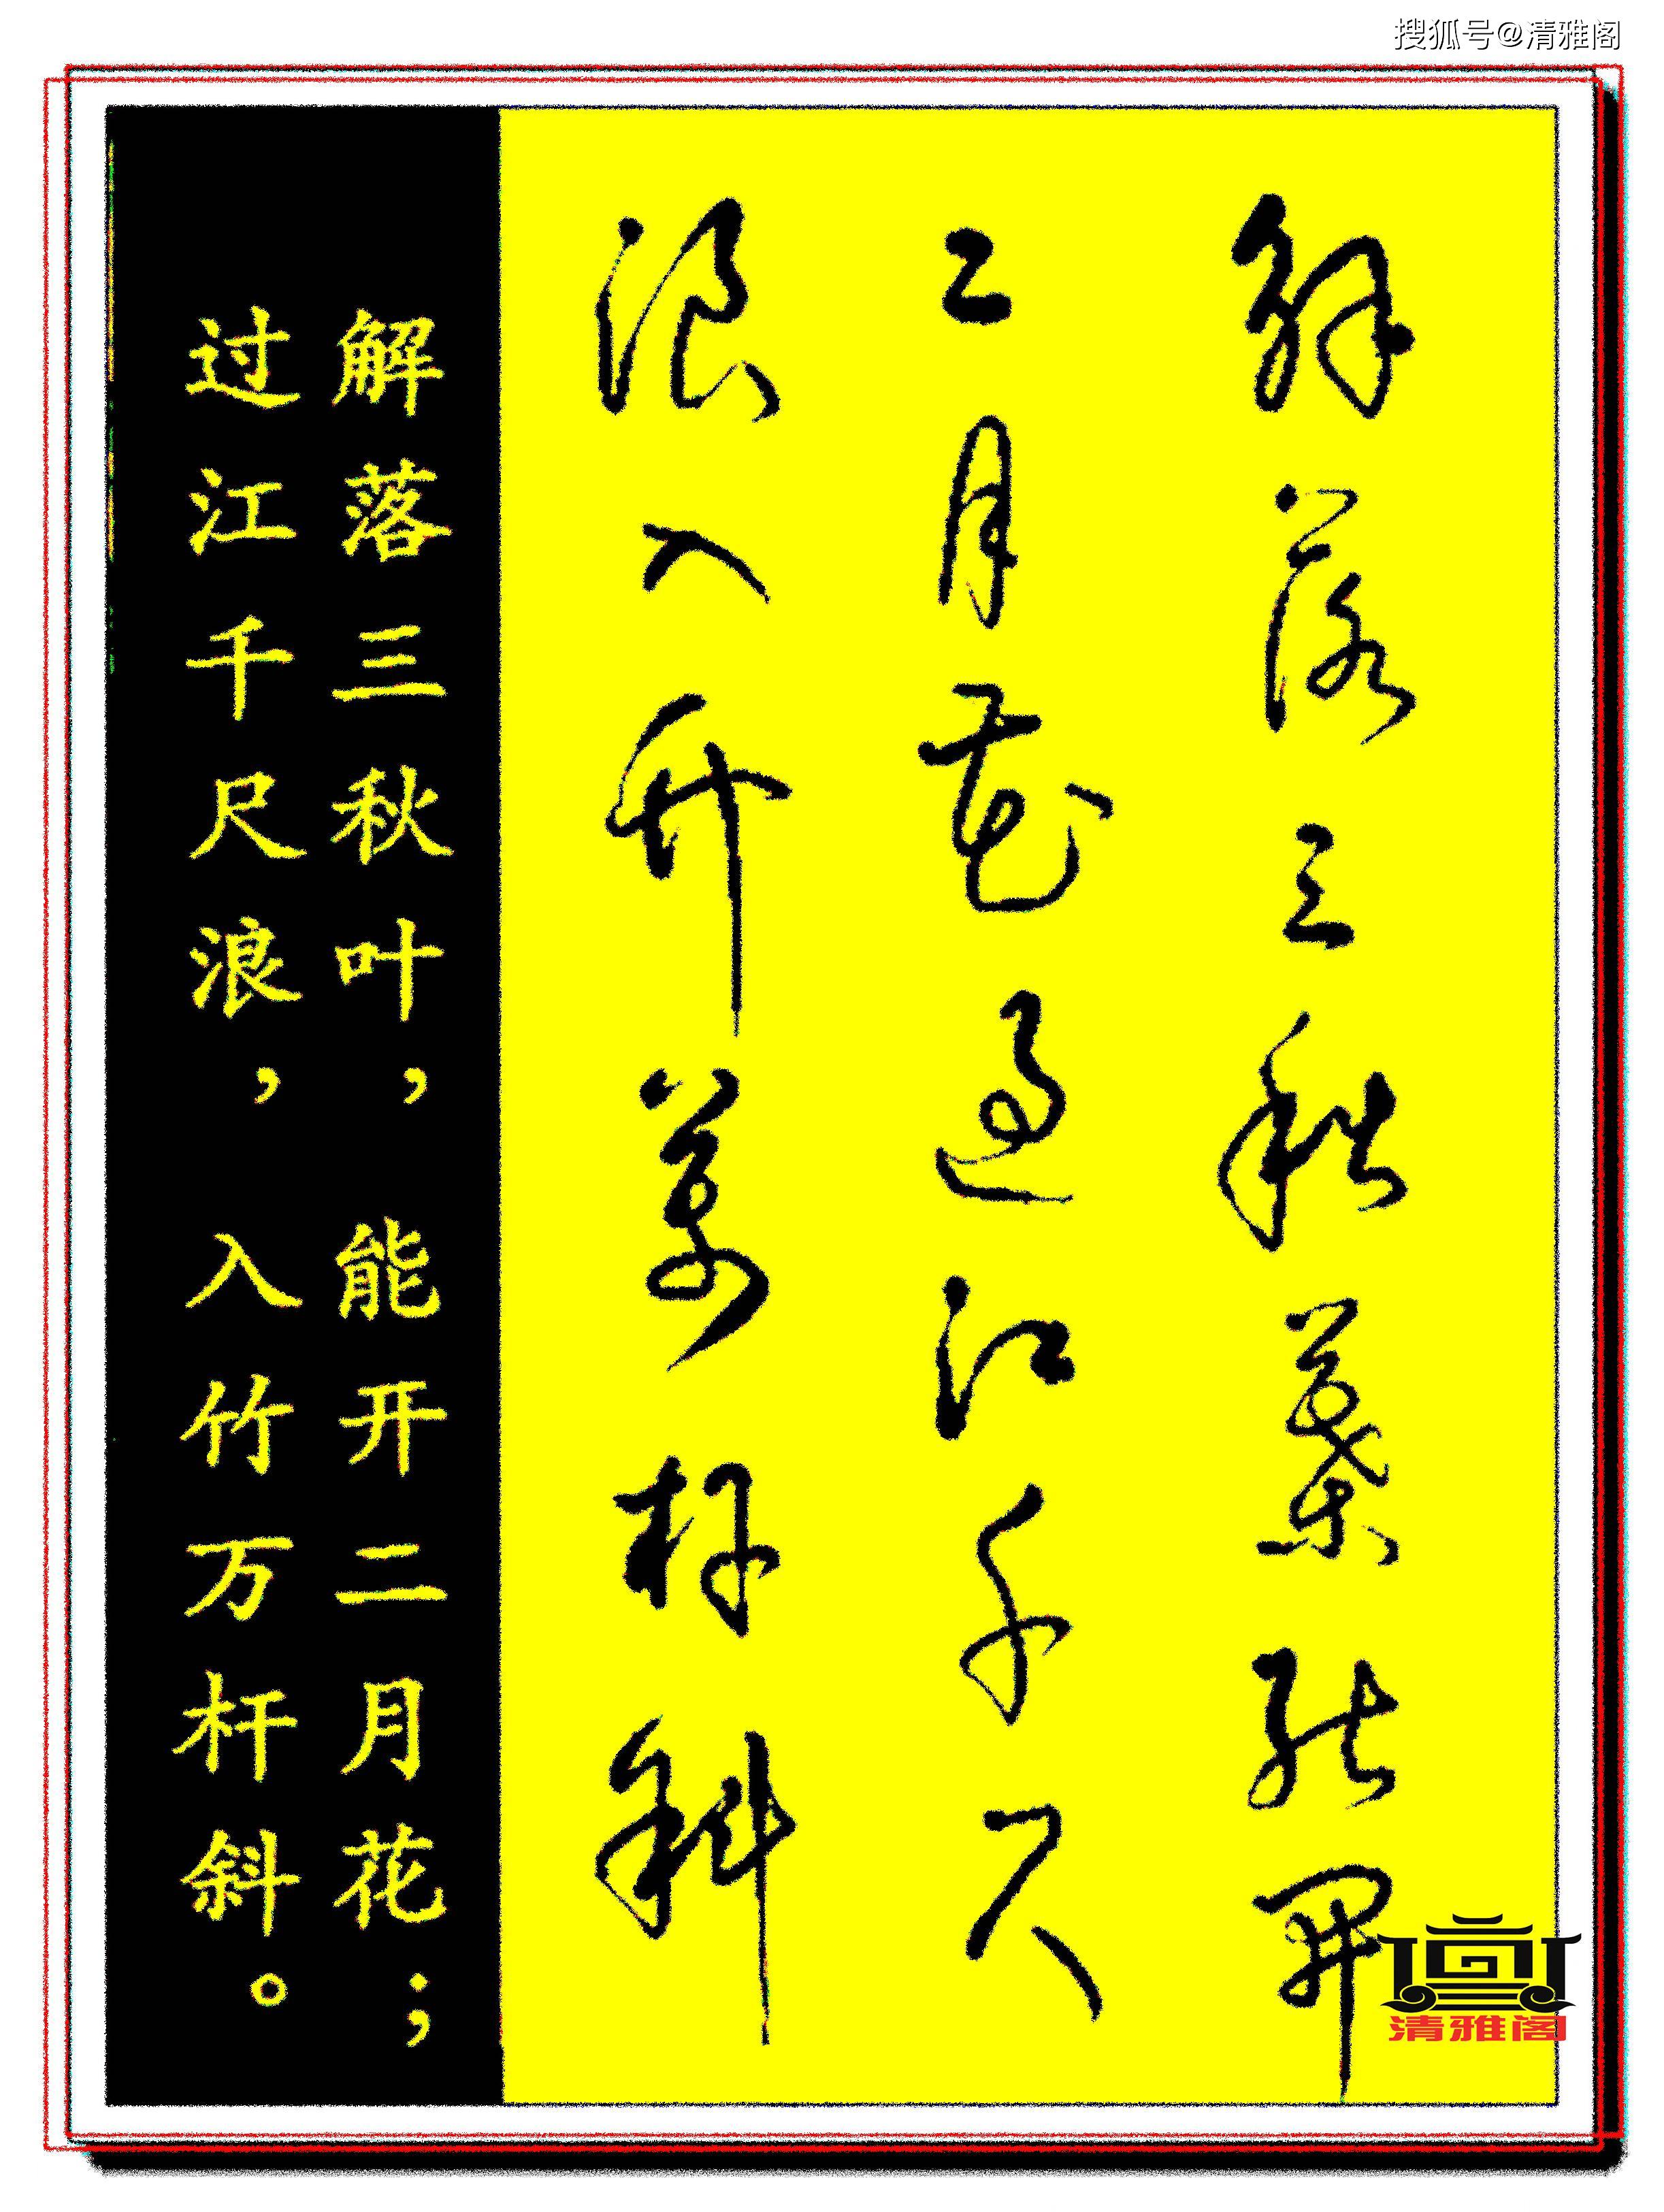 搜狐号@清雅阁
解落三秋葉能開
二月花過江千尺
浪入竹萬杆斜
解落三秋叶，能开二月花；
过江千尺浪，入竹万杆斜。
清雅阁